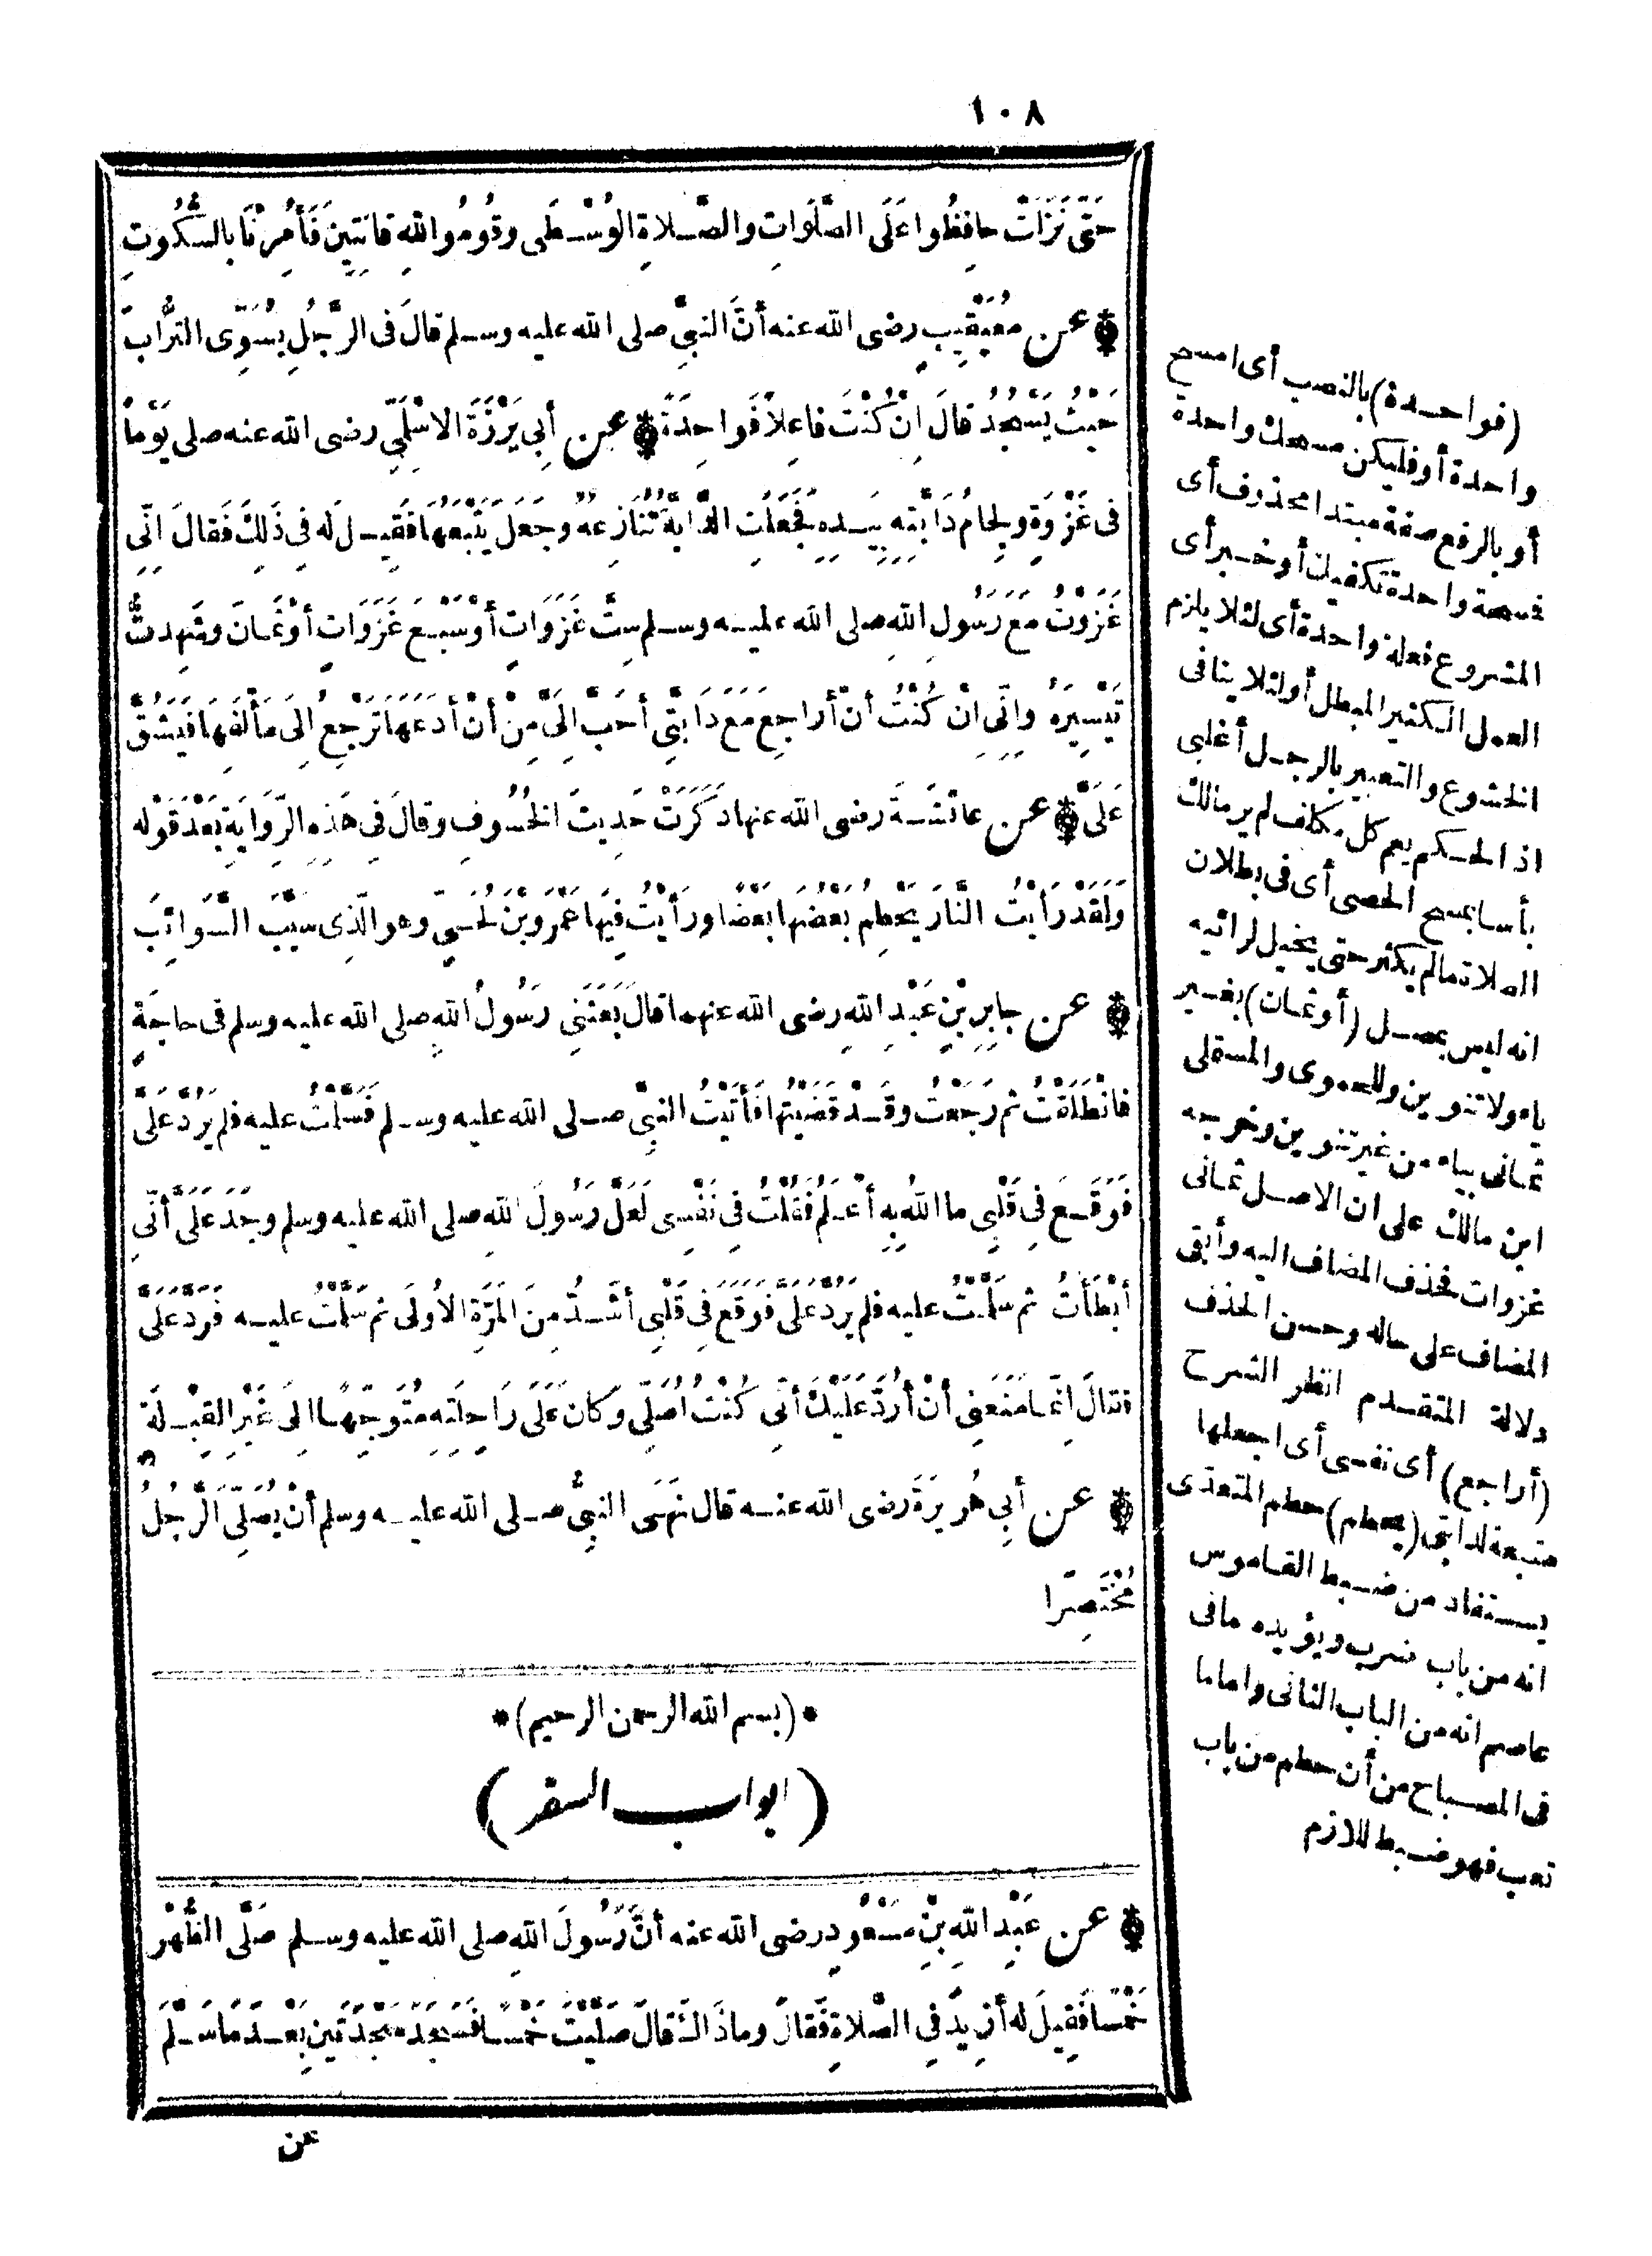 ١٠٨
حَتَّى نَزَلَتْ حافِظُوا عَلَى الصَّلَوَاتِ والصَّلاةِ الوُسْطَى وقُومُوا للهِ قانِتِينَ فَأُمِرْنَا بالسُّكُوتِ
عن مُعَيْقِيبٍ رضى الله عنه أنَّ النبىَّ صلى الله عليه وسلم قالَ فى الرَّجُلِ يُسَوِّى التُّرَابَ
حَيْثُ يَسْجُدُ قالَ إنْ كُنْتَ فاعِلاً فَوَاحِدَةً عن أبِى بَرْزَةَ الاسْلَمِىِّ رضى الله عنه صلى يَوْماً
فى غَزْوَةٍ ولِجامُ دَابَّتِهِ بِيَدِهِ فَجَعَلَتِ الدَّابَّةُ تُنَازِعُهُ وجَعَلَ يَتْبَعُهَا فَقِيلَ لَه فى ذَلِكَ فَقالَ إنِّى
غَزَوْتُ مَعَ رَسُولِ اللهِ صلى الله عليه وسلم سِتَّ غَزَوَاتٍ أوْ سَبْعَ غَزَوَاتٍ أوْ ثَمَانَ وشَهِدتُّ
تَيْسِيرَهُ وإنِّى إنْ كُنْتُ أنْ أُرَاجِعَ مَعَ دَابَّتِى أحَبُّ إلَىَّ مِنْ أنْ أدَعَهَا تَرْجِعُ إلَى مَأْلَفِهَا فَيَشُقُّ
عَلَىَّ عن عائشَةَ رضى الله عنها ذَكَرَتْ حَدِيثَ الخُسُوفِ وقالَ فى هَذِهِ الرِّوَايَةِ بَعْدَ قَوْلِه
وَلَقَدْ رَأيْتُ النَّارَ يَحْطِمُ بَعْضُهَا بَعْضًا ورَأيْتُ فِيهَا عَمْرَو بْنَ لُحَىٍّ وهو الَّذِى سَيَّبَ السَّوَائِبَ
عن جابِرِ بْنِ عَبْدِ اللهِ رضى الله عنهما قالَ بَعَثَنِى رَسُولُ اللهِ صلى الله عليه وسلم فى حاجَةٍ
فانْطَلَقْتُ ثم رَجَعْتُ وقَدْ قَضَيْتُها فَأتَيْتُ النبىَّ صلى الله عليه وسلم فَسَلَّمْتُ عليه فلم يَرُدَّ عَلَىَّ
فَوَقَعَ فى قَلْبِى ما اللهُ بِهِ أعْلَمُ فَقُلْتُ فى نَفْسِى لَعَلَّ رَسُولَ اللهِ صلى الله عليه وسلم وجَدَ عَلَىَّ أنِّى
أبْطَأتُ ثم سَلَّمْتُ عليه فلم يَرُدَّ عَلَىَّ فَوَقَعَ فى قَلْبِى أشَدُّ مِنَ المَرَّةِ الاُولَى ثم سَلَّمْتُ عليه فَرَدَّ عَلَىَّ
فقالَ إنَّمَا مَنَعَنِى أنْ أرُدَّ عَلَيْكَ أنِّى كُنْتُ أُصَلِّى وكان عَلَى رَاحِلَتِهِ مُتَوَجِّهًا إلَى غَيْرِ القِبْلَةِ
عن أبِى هُرَيرَةَ رضى الله عنه قال نَهَى النبىُّ صلى الله عليه وسلم أنْ يُصَلِّىَ الرَّجُلُ
مُخْتَصِرًا
*(بسم الله الرحمن الرحيم)*
(ابواب السفر)
عن عَبْدِ اللهِ بْنِ مَسْعُودٍ رضى الله عنه أنَّ رَسُولَ اللهِ صلى الله عليه وسلم صَلَّى الظُّهْرَ
خَمْسًا فَقِيلَ له أزِيدَ فى الصَّلاةِ فَقالَ وما ذَاكَ قالَ صَلَّيْتَ خَمْسًا فَسَجَدَ سَجْدَتَيْنِ بَعْدَ مَا سَلَّمَ
عن
(فواحدة) بالنصب أى امسح
واحدة أو فليكن مسحك واحدة
أو بالرفع صفة مبتدا محذوف أى
فسحة واحدة تكفيك أو خبر أى
المشروع فعلة واحدة أى لئلا يلزم
العمل الكثير المبطل أو لئلا ينافى
الخشوع والتعبير بالرجل أغلبى
اذ الحكم يعم كل مكلف لم ير مالك
بأسا بمسح الحصى أى فى بطلان
الصلاة مالم يكثر حتى يخيل لرائيه
انه ليس بمصل (أوثمان) بغير
ياء ولا تنوين وللحموى والمستملى
ثمانى بياء من غير تنوين وخرجه
ابن مالك على ان الاصل ثمانى
غزوات فحذف المضاف اليه وأبقى
المضاف على حاله وحسن الحذف
دلالة المتقدم انظر الشرح
(أراجع) أى نفسى أى اجعلها
متبعة لدابتى (يحطم) حطم المتعدى
يستفاد من ضبط القاموس
انه من باب ضرب ويؤيده مافى
عاصم انه من الباب الثانى واما ما
فى المصباح من أن حطم من باب
تعب فهو ضبط للازم